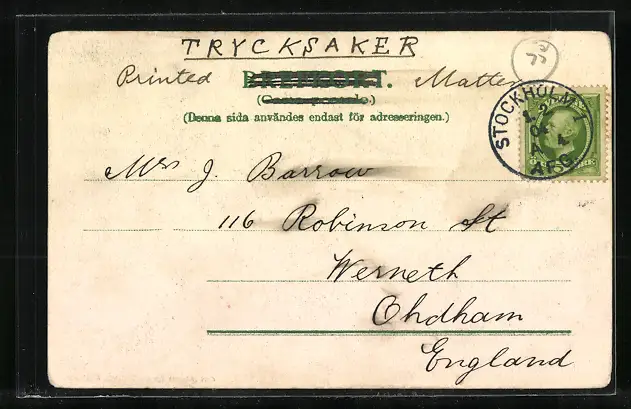 TRYCKSAKER
Printed BREFKORT. Matter
(Carte postale.)
(Denna sida användes endast för adresseringen.)
STOCKHOLM 1
AFG.
Mrs J. Barrow
116 Robinson St
Werneth
Ohdham
England